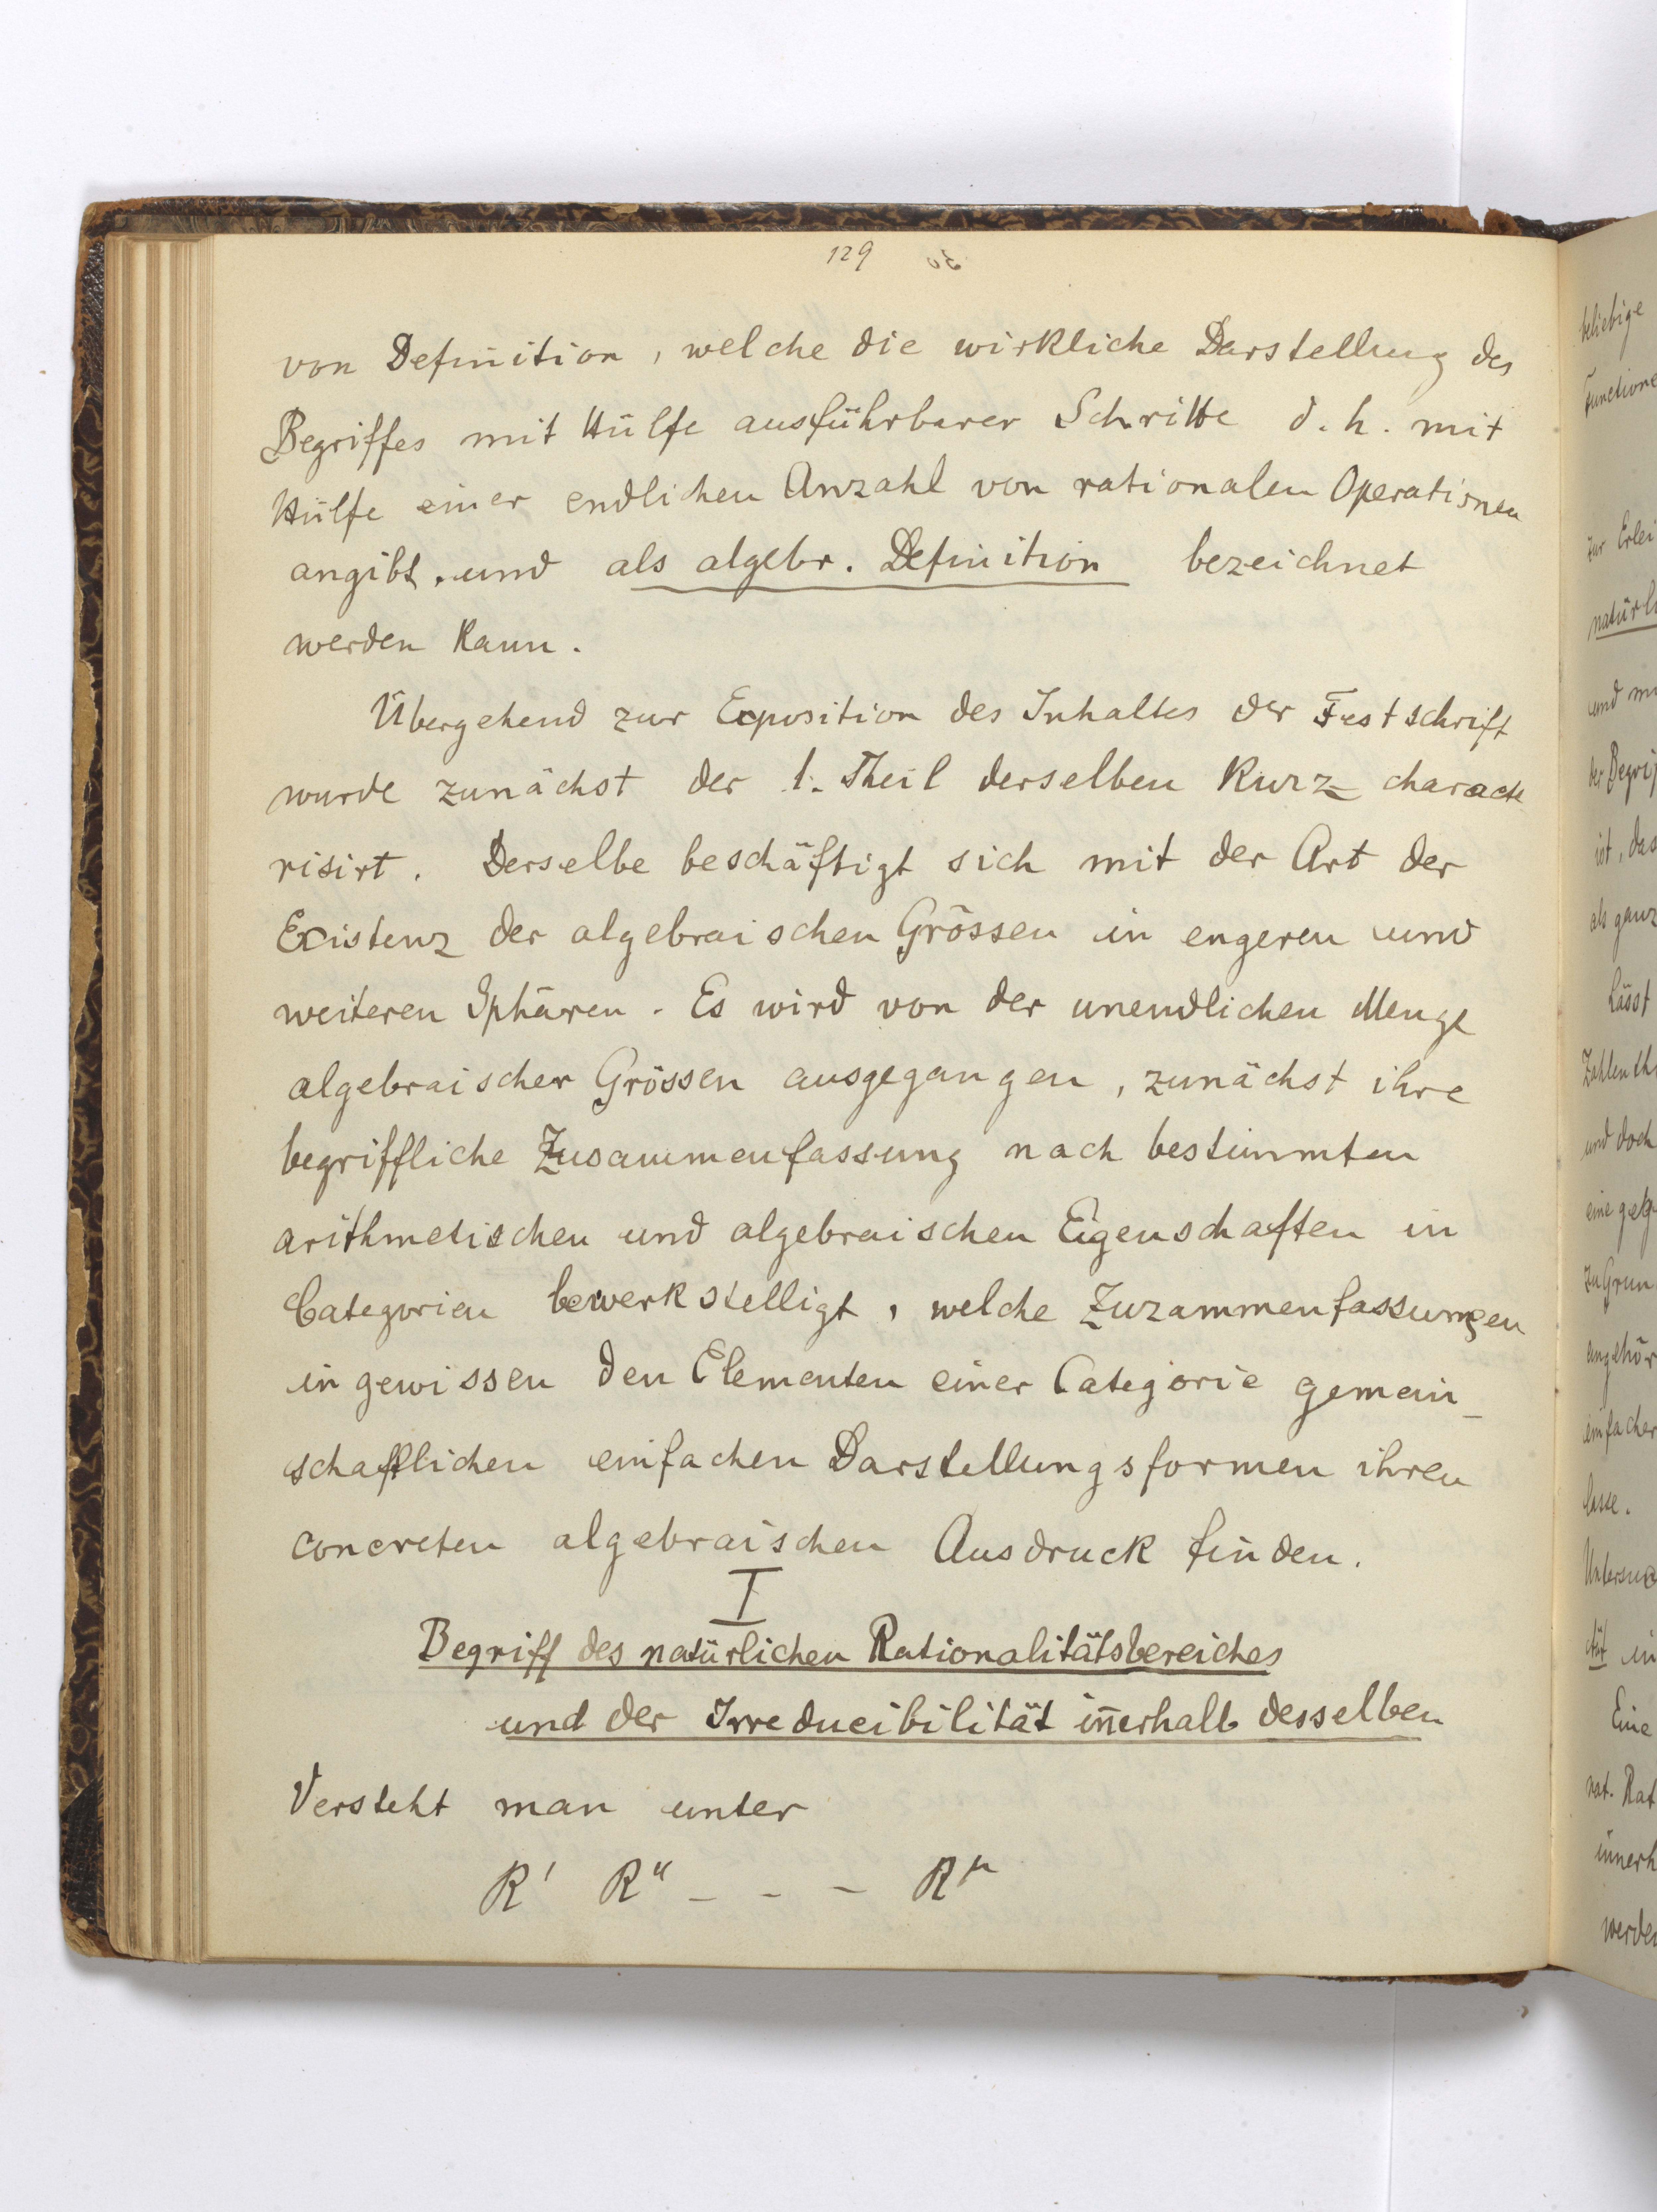 129
von Definition, welche die wirkliche Darstellung des
Begriffes mit Hülfe ausführbarer Schritte d. h. mit
Hülfe einer endlichen Anzahl von rationalen Operationen
angibt, und als algebr. Definition bezeichnet
werden kann.
Übergehend zur Exposition des Inhaltes der Festschrift
wurde zunächst der 1. Theil derselben kurz characte
risirt. Derselbe beschäftigt sich mit der Art der
Existenz der algebraischen Grössen in engeren und
weiteren Sphären. Es wird von der unendlichen Menge
algebraischer Grössen ausgegangen, zunächst ihre
begriffliche Zusammenfassung nach bestimmten
arithmetischen und algebraischen Eigenschaften in
Categorien bewerkstelligt, welche Zuzammenfassungen
in gewissen den Elementen einer Categorie gemein_
schaftlichen einfachen Darstellungsformen ihren
concreten algebraischen Ausdruck finden.
I
Begriff des natürlichen Rationalitätsbereiches
und der Irreducibilität iñerhalb desselben
Versteht man unter
R' R" - - - Rᵘ
beliebige
Functione
zur Erlei
natürli
und
der Begrif
ist, das
als ganz
Lässt
Zahlenth
und doch
eine
zu Grun
angehör
einfacher
lasse.
Untersuc
ität in
Eine
nat. Rat
innerh
werden